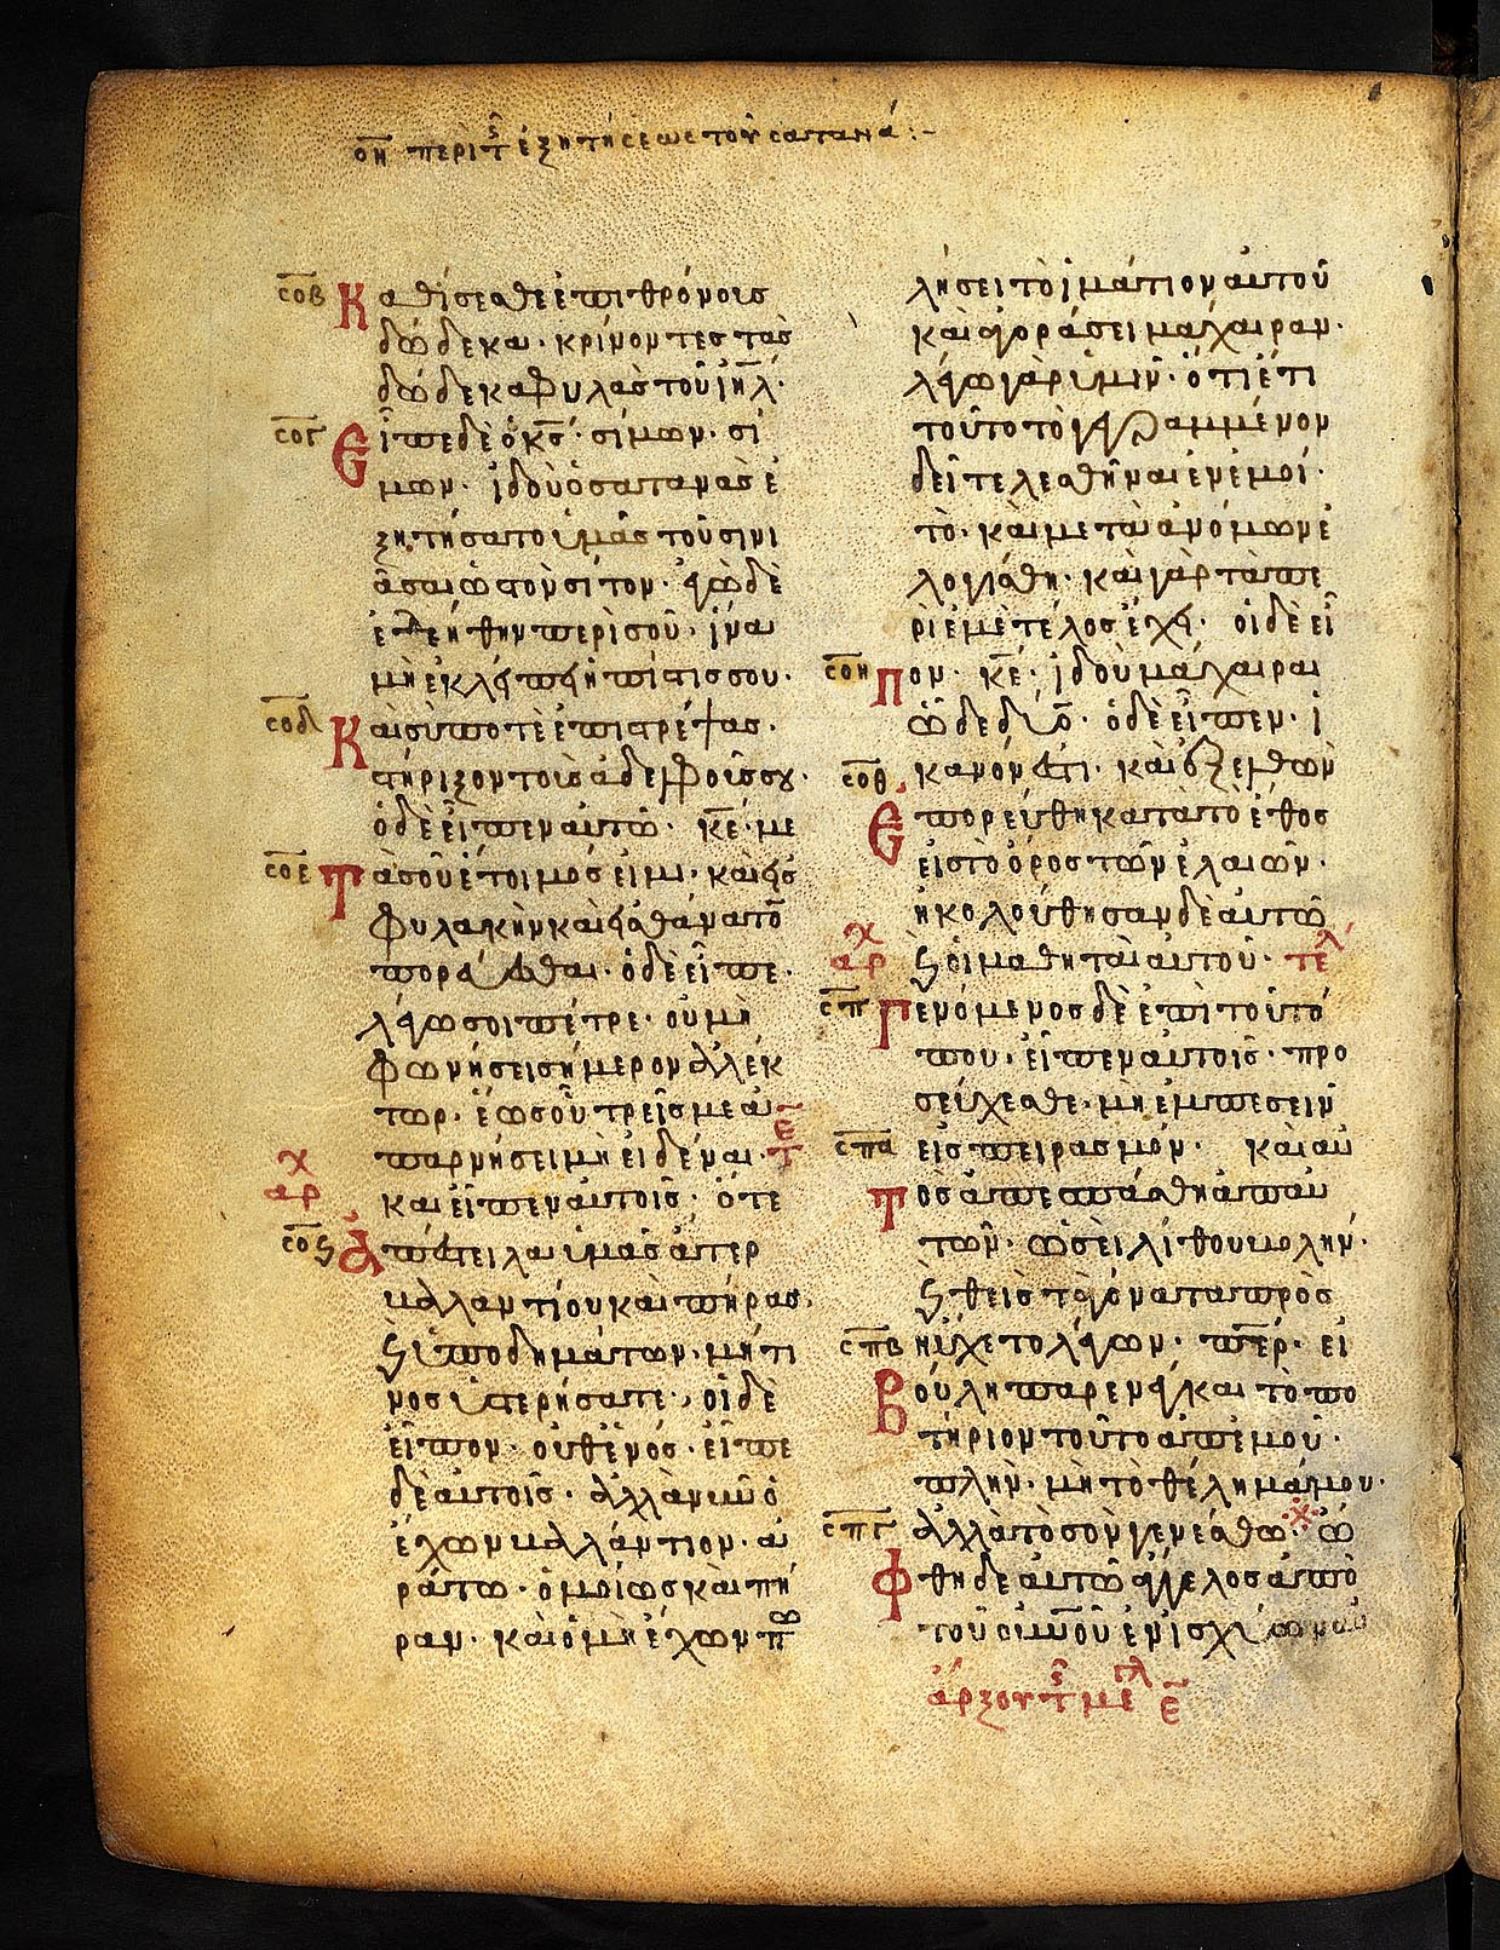 οη περὶ τῆς ἐξητήσεως τοῦ σατανᾶ :-
σοβ Καθίσεσθε ἐπι θρόνοισ
δώδεκα· κρίνοντες τὰσ
δώδεκα φυλὰσ τοῦ ιηλ·
σογ Εἶπε δὲ ὁ κσ· σίμων· σί
μων· ἰδοὺ ὁ σατανὰσ ἐ
ξητήσατο ὑμᾶσ τοῦ σινι
άσαι ὡσ τὸν σίτον· ἐγὼ δὲ
ἐδεήθην περὶ σοῦ· ἵνα
μὴ ἐκλείπει ἡ πίστισ σου·
σοδ Καὶ σύ ποτὲ ἐπιστρέψας·
στήριξον τοὺσ ἀδελφούσ σου·
ὁ δὲ εἶπεν αὐτῶ· κε· με
σοε Τὰ σοῦ ἕτοιμόσ εἰμι· καὶ εἰσ
φυλακὴν καὶ εἰσ θάνατο
πορεύεσθαι· ὁ δὲ εἶπε·
λέγω σοι πέτρε· οὐ μὴ
φωνήσει σήμερον ἀλέκ
τωρ· ἕωσ οὗ τρεῖσ με ἀ
παρνήσει μὴ εἰδέναι· τε
χ
αρ καὶ εἶπεν αὐτοῖσ· ὅτε
σος Ἀπέστειλα ὑμᾶσ ἄτερ
βαλαντίου καὶ πήρασ·
ϛ ὑποδημάτων· μή τι
νοσ ὑστερήσατε· οἱ δὲ
εἶπον· οὐθένόσ· εἶπε
δὲ αὐτοῖσ· ἀλλὰ νῦν ὁ
ἔχων βαλλάντιον· ἀ
ράτω· ὁμοίωσ καὶ πή
ραν· καὶ ὁ μὴ ἔχων πω
λήσει τὸ ἱμάτιον αὐτοῦ
καὶ ἀγοράσει μάχαιραν·
λέγω γὰρ ὑμῖν· ὅτι ἔτι
τοῦτο τὸ γεγραμμένον
δεῖ τελεσθῆναι ἐν ἐμοί·
τὸ· καὶ μετὰ ἀνόμων ἐ
λογίσθη· καὶ γὰρ τὰ πε
ρὶ ἐμὲ τέλοσ ἔχει· οἱ δὲ εἶ
σοη Πον· κε· ἰδοὺ μάχαιραι
ὧδε δύο· ὁ δὲ εἶπεν· ἱ
σοθ κανόν ἐστι· καὶ ἐξελθὼν
Ἐπορεύθη κατὰ τὸ ἔθοσ
εἰσ τὸ ὄροσ τῶν ἐλαιῶν·
ἠκολούθησαν δὲ αὐτῶ
χ
αρ ϛ οἱ μαθηταὶ αὐτοῦ· τελ
σπ Γενόμενοσ δὲ ἐπὶ τοῦ τό
που· εἶπεν αὐτοῖσ· προ
σεύχεσθε· μὴ ἐμπεσεῖν
σπα εἰσ πειρασμόν· καὶ αὐ
Τὸσ ἀπεσπάσθη ἀπ αὐ
τῶν· ὡσεὶ λίθου βολήν·
ϛ θεὶσ τὰ γόνατα πρὸσ
σπβ ηὔχετο λέγων· περ· εἰ
Βούλη παρένεγκαι τὸ πο
τήριον τοῦτο ἀπ ἐμοῦ·
πλὴν· μὴ τὸ θέλημά μου·
σπγ ἀλλὰ τὸ σὸν γενέσθω· ὤ
Φθη δε αὐτῶ ἄγγελοσ ἀπὸ
τοῦ οὐνοῦ ἐνισχύων αὐ
ἄρξου τῆς μεγλ ε